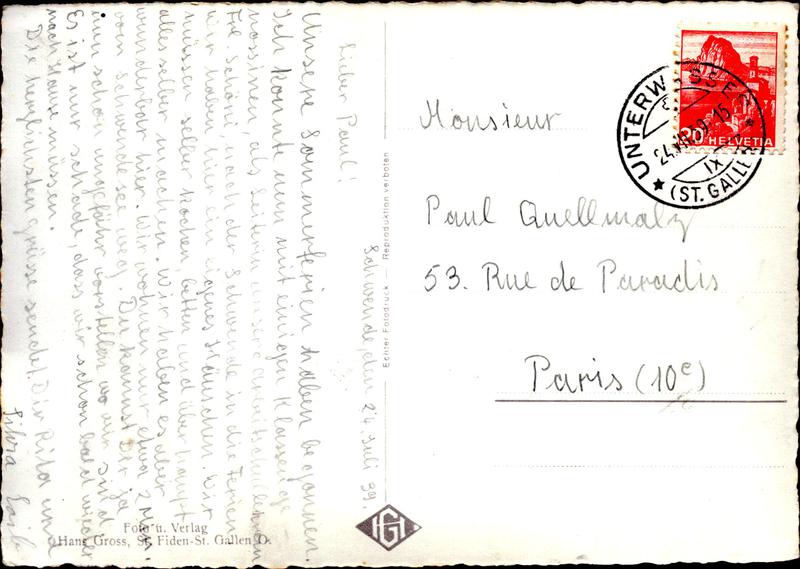 Schwende, den 24 Juli 39.
Lieber Paul!
Unsere Sommerferien haben begonnen.
Ich konnte nun mit einigen Klassenge-
nossinnen, als Leiterin unsere Arbeitschullehrerin
Frl. Schöni, nach der Schwende in die Ferien.
Wir haben hier ein eigenes Häuschen. Wir
müssen selber kochen, betten und überhaupt
alles selber machen. Wir haben es aber
wunderbar hier. Wir wohnen nur etwa 2 Min.
vom Schwendesee weg. Du kannst Dir ja
nun schon ungefähr vorstellen wo wir sind.
Es ist nur schade, dass wir schon bald wieder
nach Hause müssen.
Die herzlichsten Grüsse sendet Dir Rita und
Echter Fotodruck — Reproduktion verboten
Foto u. Verlag
Hans Gross, St. Fiden-St. Gallen O.
HG
Monsieur
Paul Quellmalz
53. Rue de Paradis
Paris (10e)
20 HELVETIA
UNTERWASSER
24.VII.39.15
IX
(ST. GALLEN)